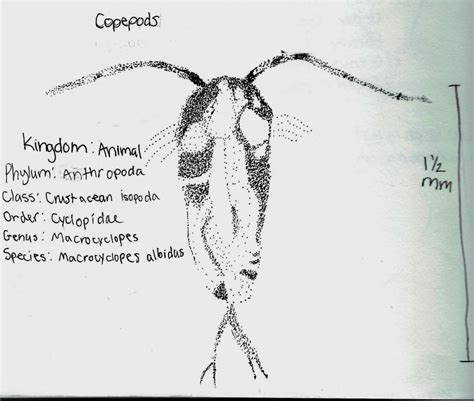 Copepods
Kingdom: Animal
Phylum: Anthropoda
Class: Crustacean isopoda
Order: Cyclopidae
Genus: Macrocyclopes
Species: Macrocyclopes albidus
1½
mm